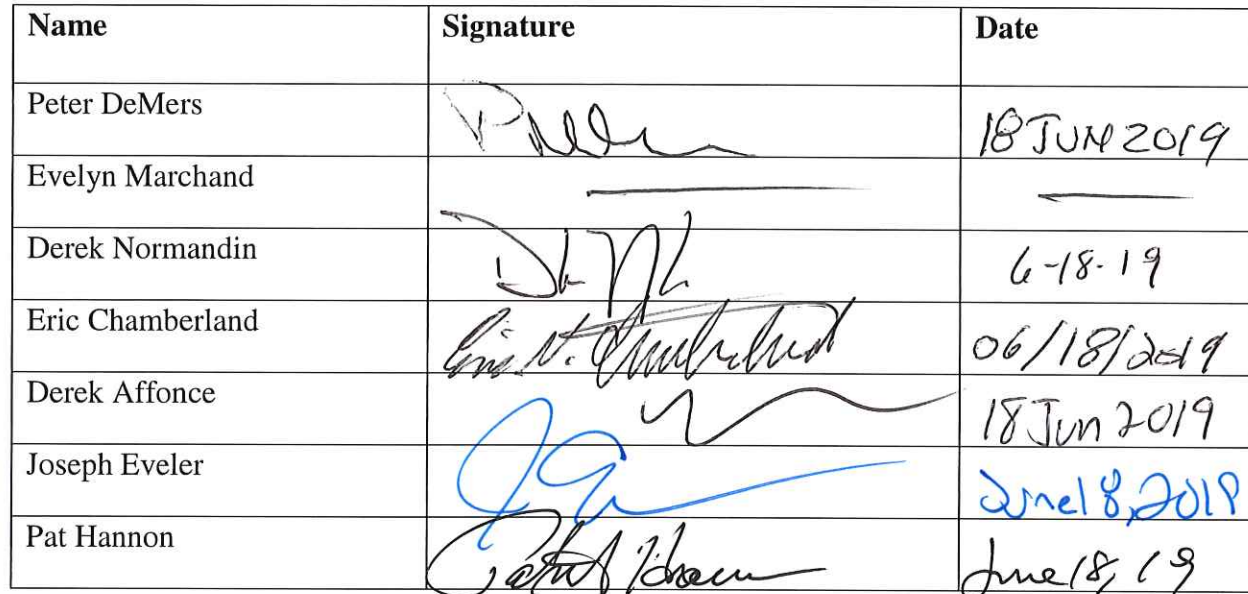 Name Signature Date
Peter DeMers 18 JUN 2019
Evelyn Marchand
Derek Normandin 6-18-19
Eric Chamberland Eric N. Chamberland 06/18/2019
Derek Affonce 18 Jun 2019
Joseph Eveler June 18, 2019
Pat Hannon June 18, 19